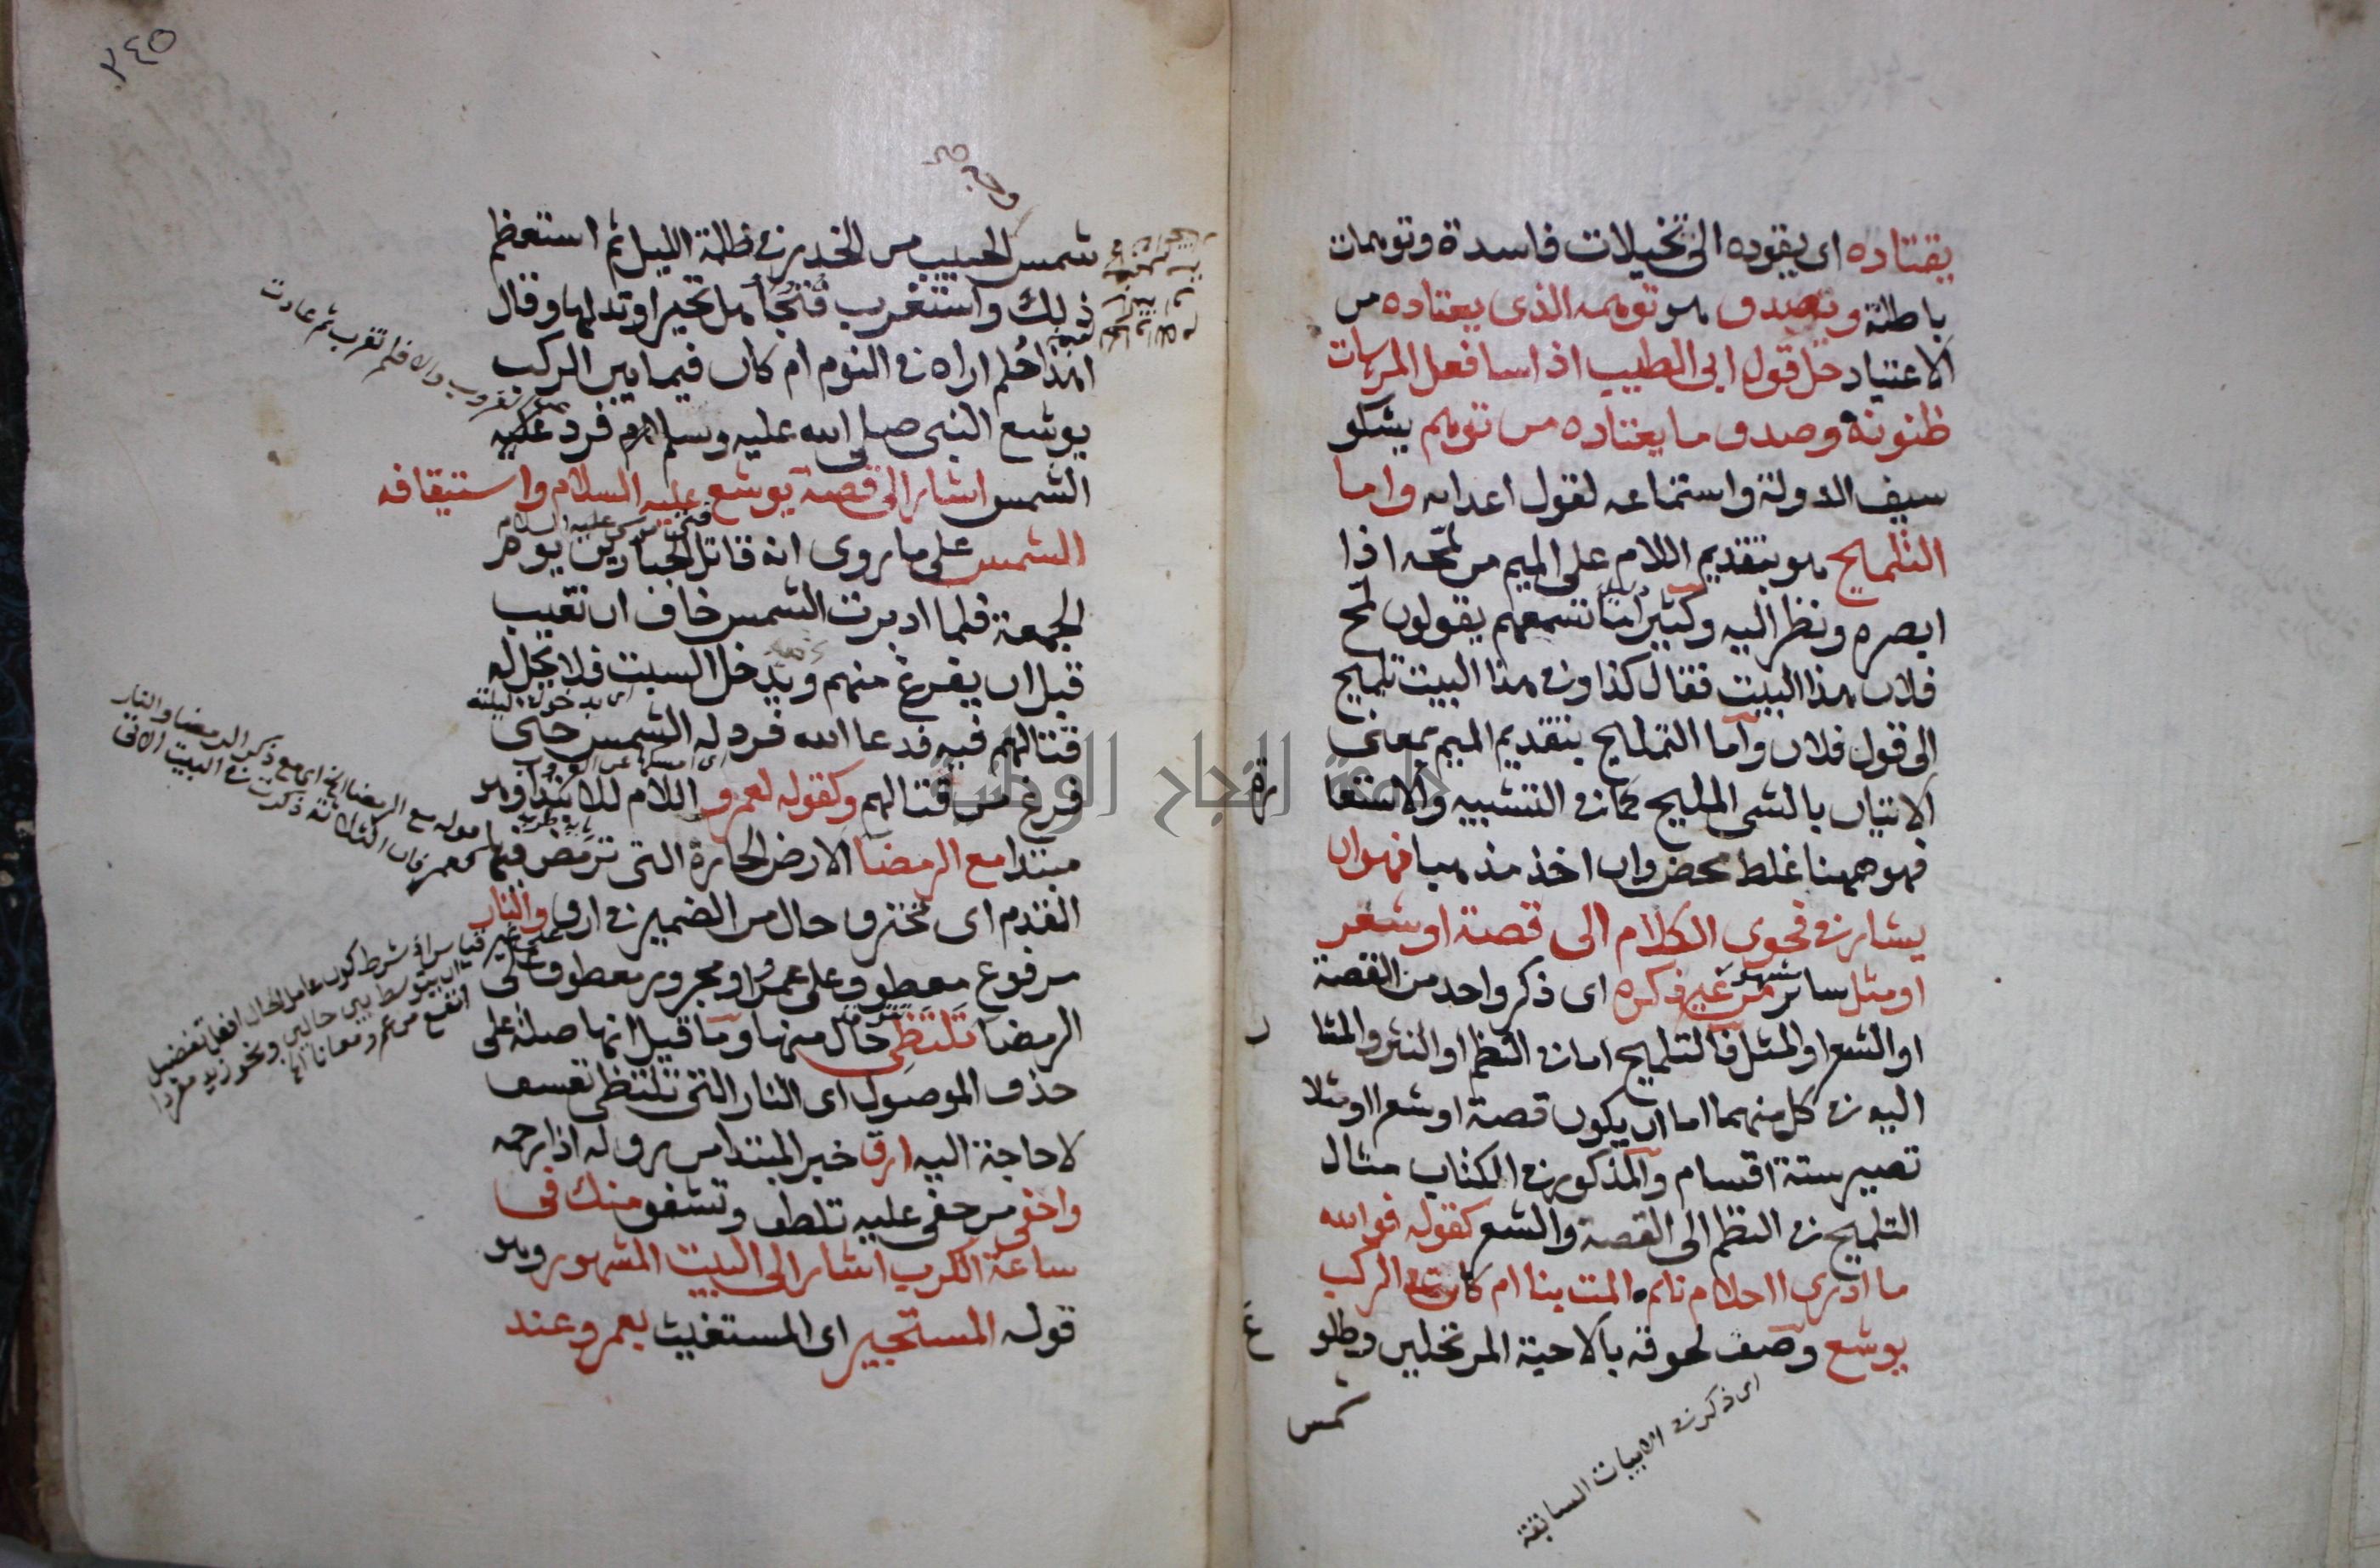 يقتاده اى يقوده الى تخيلات فاسدة وتوهمات
باطلة وتصدق هو توهمه الذى يعتاده من
الاعتياد حل قول ابى الطيب اذا ساء فعل المرء ساءت
ظنونه وصدق ما يعتاده من توهم يشكو
سيف الدولة واستماعه لقول اعدائه واما
التلميح هو بتقديم اللام على الميم من لمحه اذا
ابصره ونظر اليه وكثيرا ما تسمعهم يقولون لمح
فلان هذا البيت فقال كذا وفى هذا البيت تلميح
الى قول فلان واما التمليح بتقديم الميم بمعنى
الاتيان بالشى المليح كما فى التشبيه والاستعا
رة
فهو ههنا غلط محض وان اخذ مذهبا فهو ان
يشار فى فحوى الكلام الى قصة او شعر
او مثل سائر من غير ذكره اى ذكر واحد من القصة
او الشعر او المثل فالتلميح اما فى النظم او النثر والمشا
ر
اليه فى كل منهما اما ان يكون قصة او شعرا او مثلا
تصير ستة اقسام والمذكور فى الكتاب مثال
التلميح فى النظم الى القصة والشعر كقوله فوالله
ما ادرى ااحلام نائم المت بنا ام كان فى الركب
يوشع وصف لحوقه بالاحبة المرتحلين وطلو
ع
شمس
اى ذكر فى الابيات السابقة
٢٤٥
شمس الحبيب من الخدر فى ظلمة الليل ثم استعظم
ذلك واستغرب فتجاهل تحيرا وتدلها وقال
اهذا حلم اراه فى النوم ام كان فيما بين الركب
يوشع النبى صلى الله عليه وسلم فرد عليه
الشمس اشار الى قصة يوشع عليه السلام واستيقافه
فتى موسى عليه السلام
الشمس على ما روى انه قاتل الجبارين يوم
الجمعة فلما ادبرت الشمس خاف ان تغيب
قبل ان يفرغ منهم ويدخل السبت فلا يحل له
قتالهم فيه فدعا الله فرد له الشمس حتى
فرغ من قتالهم وكقوله لعمرو اللام للابتداء وهو
مبتدا مع الرمضا الارض الحارة التى ترمض فيها
القدم اى تحترق حال من الضمير فى ارق والنار
مرفوع معطوف على عمرو او مجرور معطوف على
الرمضا تلتظى حال منها وما قيل انها صلة على
حذف الموصول اى النار التى تلتظى تعسف
لا حاجة اليه ارق خبر المبتدا من رق له اذا رحمه
واحفى من حفى عليه تلطف وتشفق منك فى
ساعة الكرب اشار الى البيت المشهور وهو
قوله المستجير اى المستغيث بعمرو عند